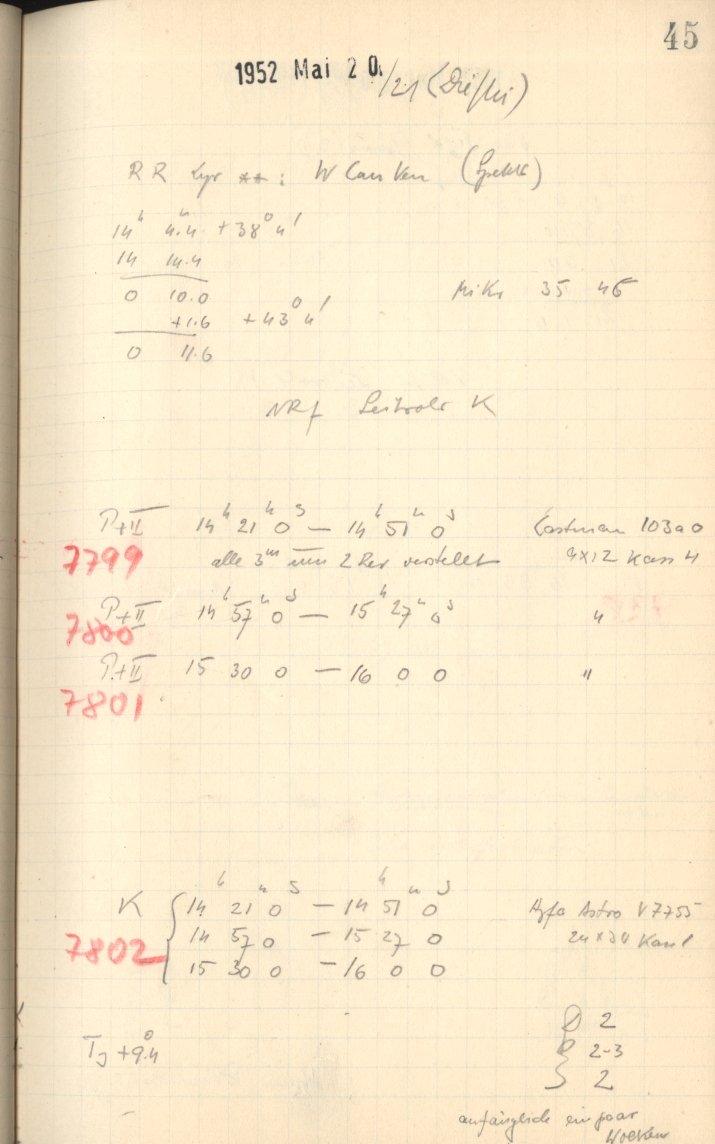 45
1952 Mai 20/21
RR Lyr **: W Can Ven
14ʰ 4.4 +38° 4'
14 14.4
0 10.0
Mikr 35 45
+1.6 +43° 4'
0 11.6
NRf K
P+II 14ʰ 21ᵐ 0ˢ — 14ʰ 51ᵐ 0ˢ Eastman 103a0
7799 alle 3ᵐ um 2 Rev verstellt 9x12 Kass 4
P+II 14ʰ 57ᵐ 0ˢ — 15ʰ 27ᵐ 0ˢ "
7800
P+II 15 30 0 — 16 0 0 "
7801
K 14ʰ 21ᵐ 0ˢ — 14ʰ 51ᵐ 0ˢ Agfa Astro V7755
7802 14 57 0 — 15 27 0 24x24 Kass 1
15 30 0 — 16 0 0
D 2
TJ +9.4° 2-3
2
anfänglich ein paar
Wolken